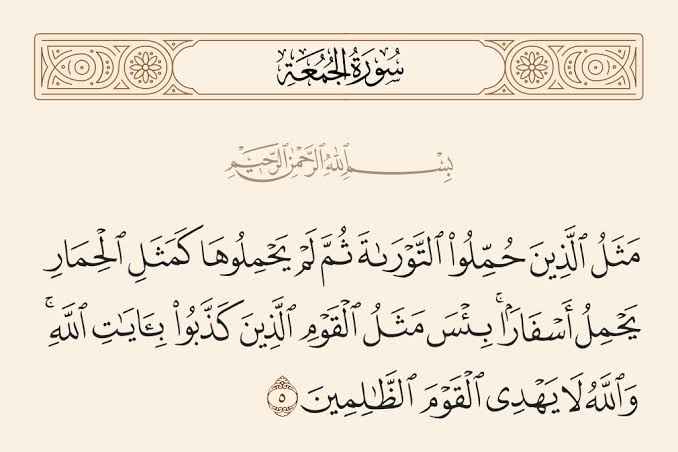 سُورَةُ الجُمُعَةِ
بِسْمِ ٱللَّهِ ٱلرَّحْمَٰنِ ٱلرَّحِيمِ
مَثَلُ ٱلَّذِينَ حُمِّلُوا۟ ٱلتَّوْرَىٰةَ ثُمَّ لَمْ يَحْمِلُوهَا كَمَثَلِ ٱلْحِمَارِ
يَحْمِلُ أَسْفَارًۢا ۚ بِئْسَ مَثَلُ ٱلْقَوْمِ ٱلَّذِينَ كَذَّبُوا۟ بِـَٔايَـٰتِ ٱللَّهِ ۚ
وَٱللَّهُ لَا يَهْدِى ٱلْقَوْمَ ٱلظَّـٰلِمِينَ ٥